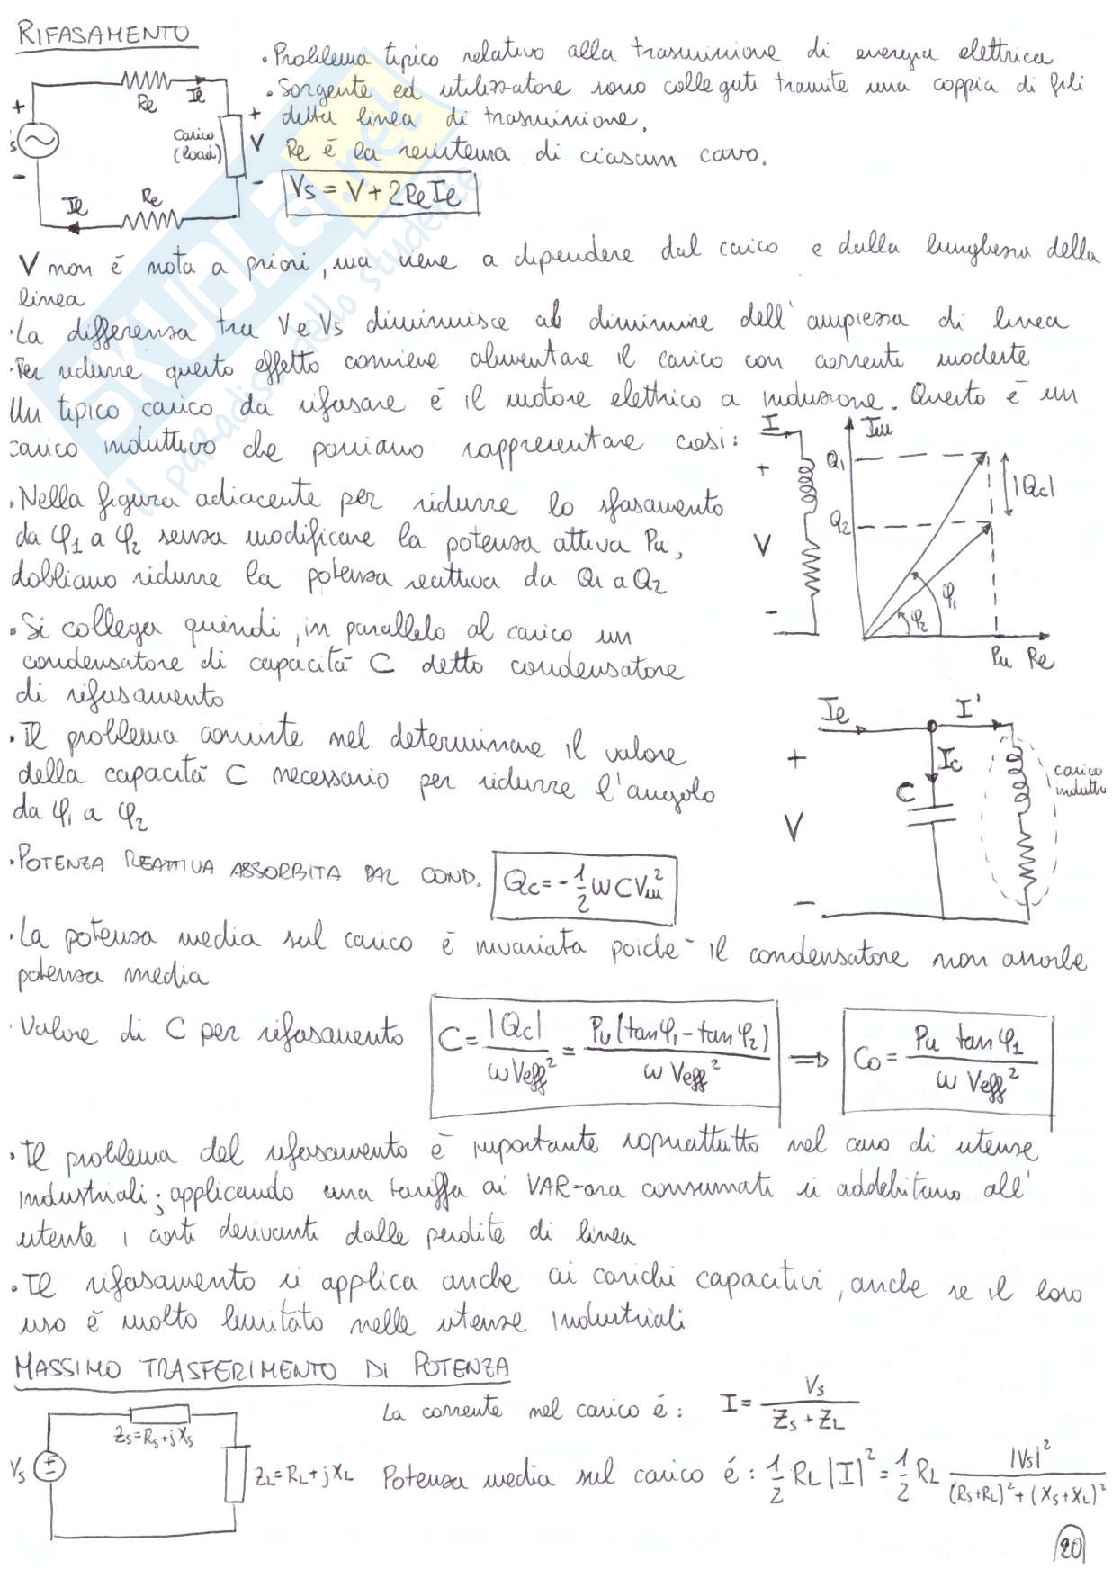 RIFASAMENTO
· Problema tipico relativo alla trasmissione di energia elettrica
· Sorgente ed utilizzatore sono collegati tramite una coppia di fili
detta linea di trasmissione.
Re è la resistenza di ciascun cavo.
Vs = V + 2ReIe
+ Re Ie + carico (load) V - Re Ie -
V non è nota a priori, ma viene a dipendere dal carico e dalla lunghezza della
linea
· La differenza tra V e Vs diminuisce al diminuire dell'ampiezza di linea
· Per ridurre questo effetto conviene alimentare il carico con correnti modeste
Un tipico carico da rifasare è il motore elettrico a induzione. Questo è un
carico induttivo che possiamo rappresentare così:
I + V -
Im Q1 Q2 |Qc| φ1 φ2 Pu Re
· Nella figura adiacente per ridurre lo sfasamento
da φ1 a φ2 senza modificare la potenza attiva Pu,
dobbiamo ridurre la potenza reattiva da Q1 a Q2
· Si collega quindi, in parallelo al carico un
condensatore di capacità C detto condensatore
di rifasamento
· Il problema consiste nel determinare il valore
della capacità C necessario per ridurre l'angolo
da φ1 a φ2
Ie I' + Ic C V - carico induttivo
· POTENZA REATTIVA ASSORBITA DAL COND. Qc = -1/2 ωCVm²
· La potenza media sul carico è invariata poiché il condensatore non assorbe
potenza media
· Valore di C per rifasamento C = |Qc| / ω Veff² = Pu (tanφ1 - tanφ2) / ω Veff² ⇒ Co = Pu tanφ1 / ω Veff²
· Il problema del rifasamento è importante soprattutto nel caso di utenze
industriali; applicando una tariffa ai VAR-ora consumati si addebitano all'
utente i costi derivanti dalle perdite di linea
· Il rifasamento si applica anche ai carichi capacitivi, anche se il loro
uso è molto limitato nelle utenze industriali
MASSIMO TRASFERIMENTO DI POTENZA
Zs=Rs+jXs
Vs
ZL=RL+jXL
La corrente nel carico è: I = Vs / Zs + ZL
Potenza media sul carico è: 1/2 RL |I|² = 1/2 RL |Vs|² / (Rs+RL)² + (Xs+XL)²
20
SKUOLA.net
il paradiso dello studente